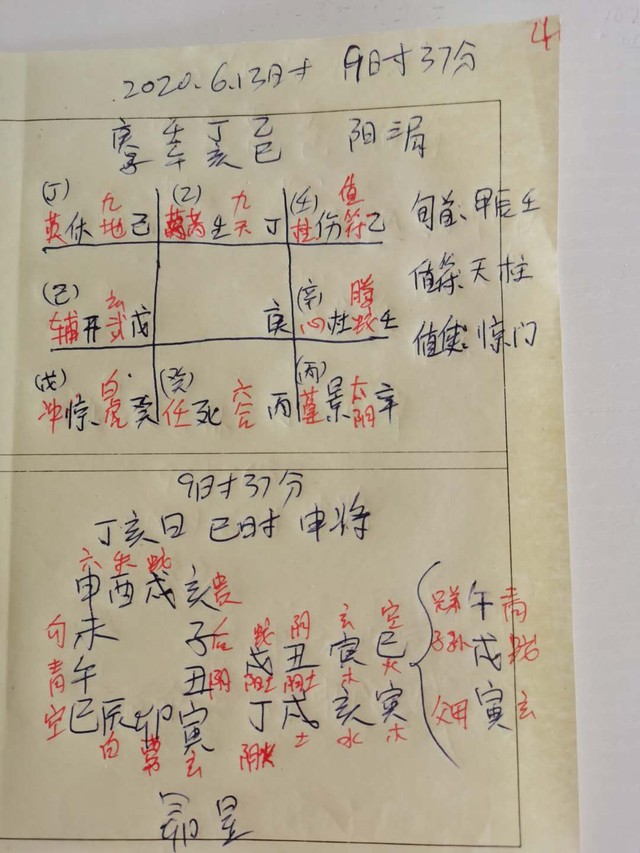 4
2020.6.13日寸 9日寸37分
庚 壬 丁 乙 阳三局
子 午 亥 巳
(丁) 九 (乙) 九 (壬) 值 旬首:甲辰壬
英休地己 芮生天丁 柱伤符乙
值符:天柱
(己) 玄 (辛) 螣
辅开武戊 庚 心杜蛇壬
值使:惊门
(戊) 白 (癸) 六 (丙) 太
冲惊虎癸 任死合丙 蓬景阴辛
9日寸37分
丁亥日 巳时 申将
六 朱 蛇
申酉戌亥贵
勾未 子后 蛇 阴 玄 空 兄弟午青
青午 丑阴 戌 丑 寅 巳 子孙戌蛇
阳土 阴土 木 火
空巳辰卯寅 丁 戌 亥 寅 父母寅玄
白 常 玄 阴火 土 水 木
昴星